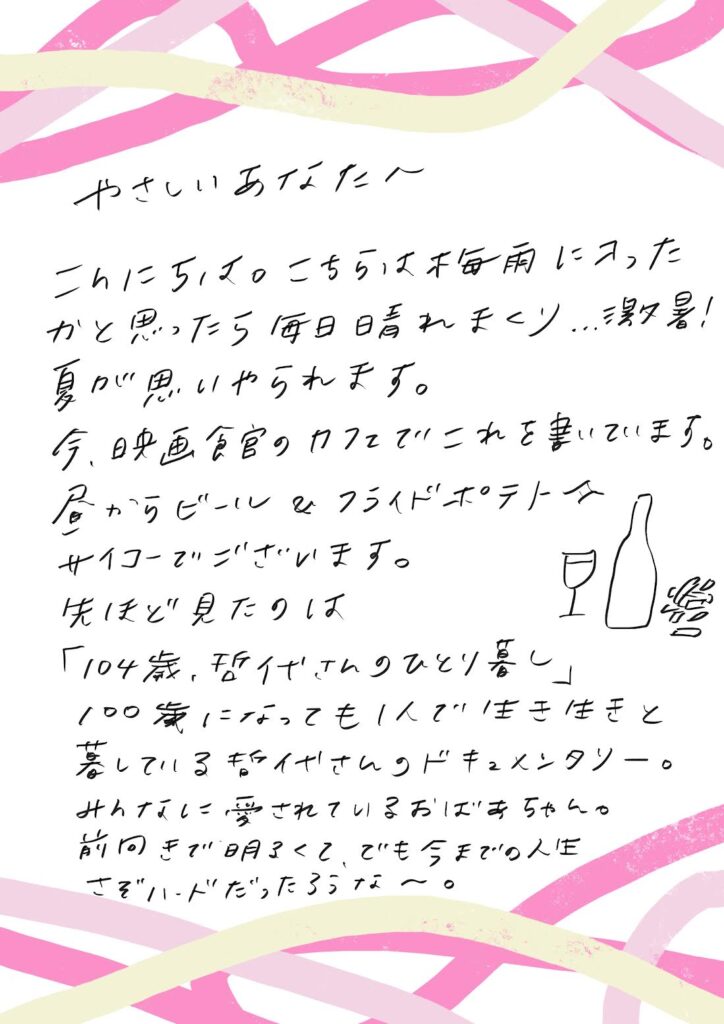 やさしいあなたへ
こんにちは。こちらは梅雨に入った
かと思ったら毎日晴れまくり...激暑!
夏が思いやられます。
今、映画館のカフェでこれを書いています。
昼からビール&フライドポテト☆
サイコーでございます。
先ほど見たのは
「104歳、哲代さんのひとり暮し」
100歳になっても1人で生き生きと
暮している哲代さんのドキュメンタリー。
みんなに愛されているおばあちゃん。
前向きで明るくて、でも今までの人生
さぞハードだったろうな〜。